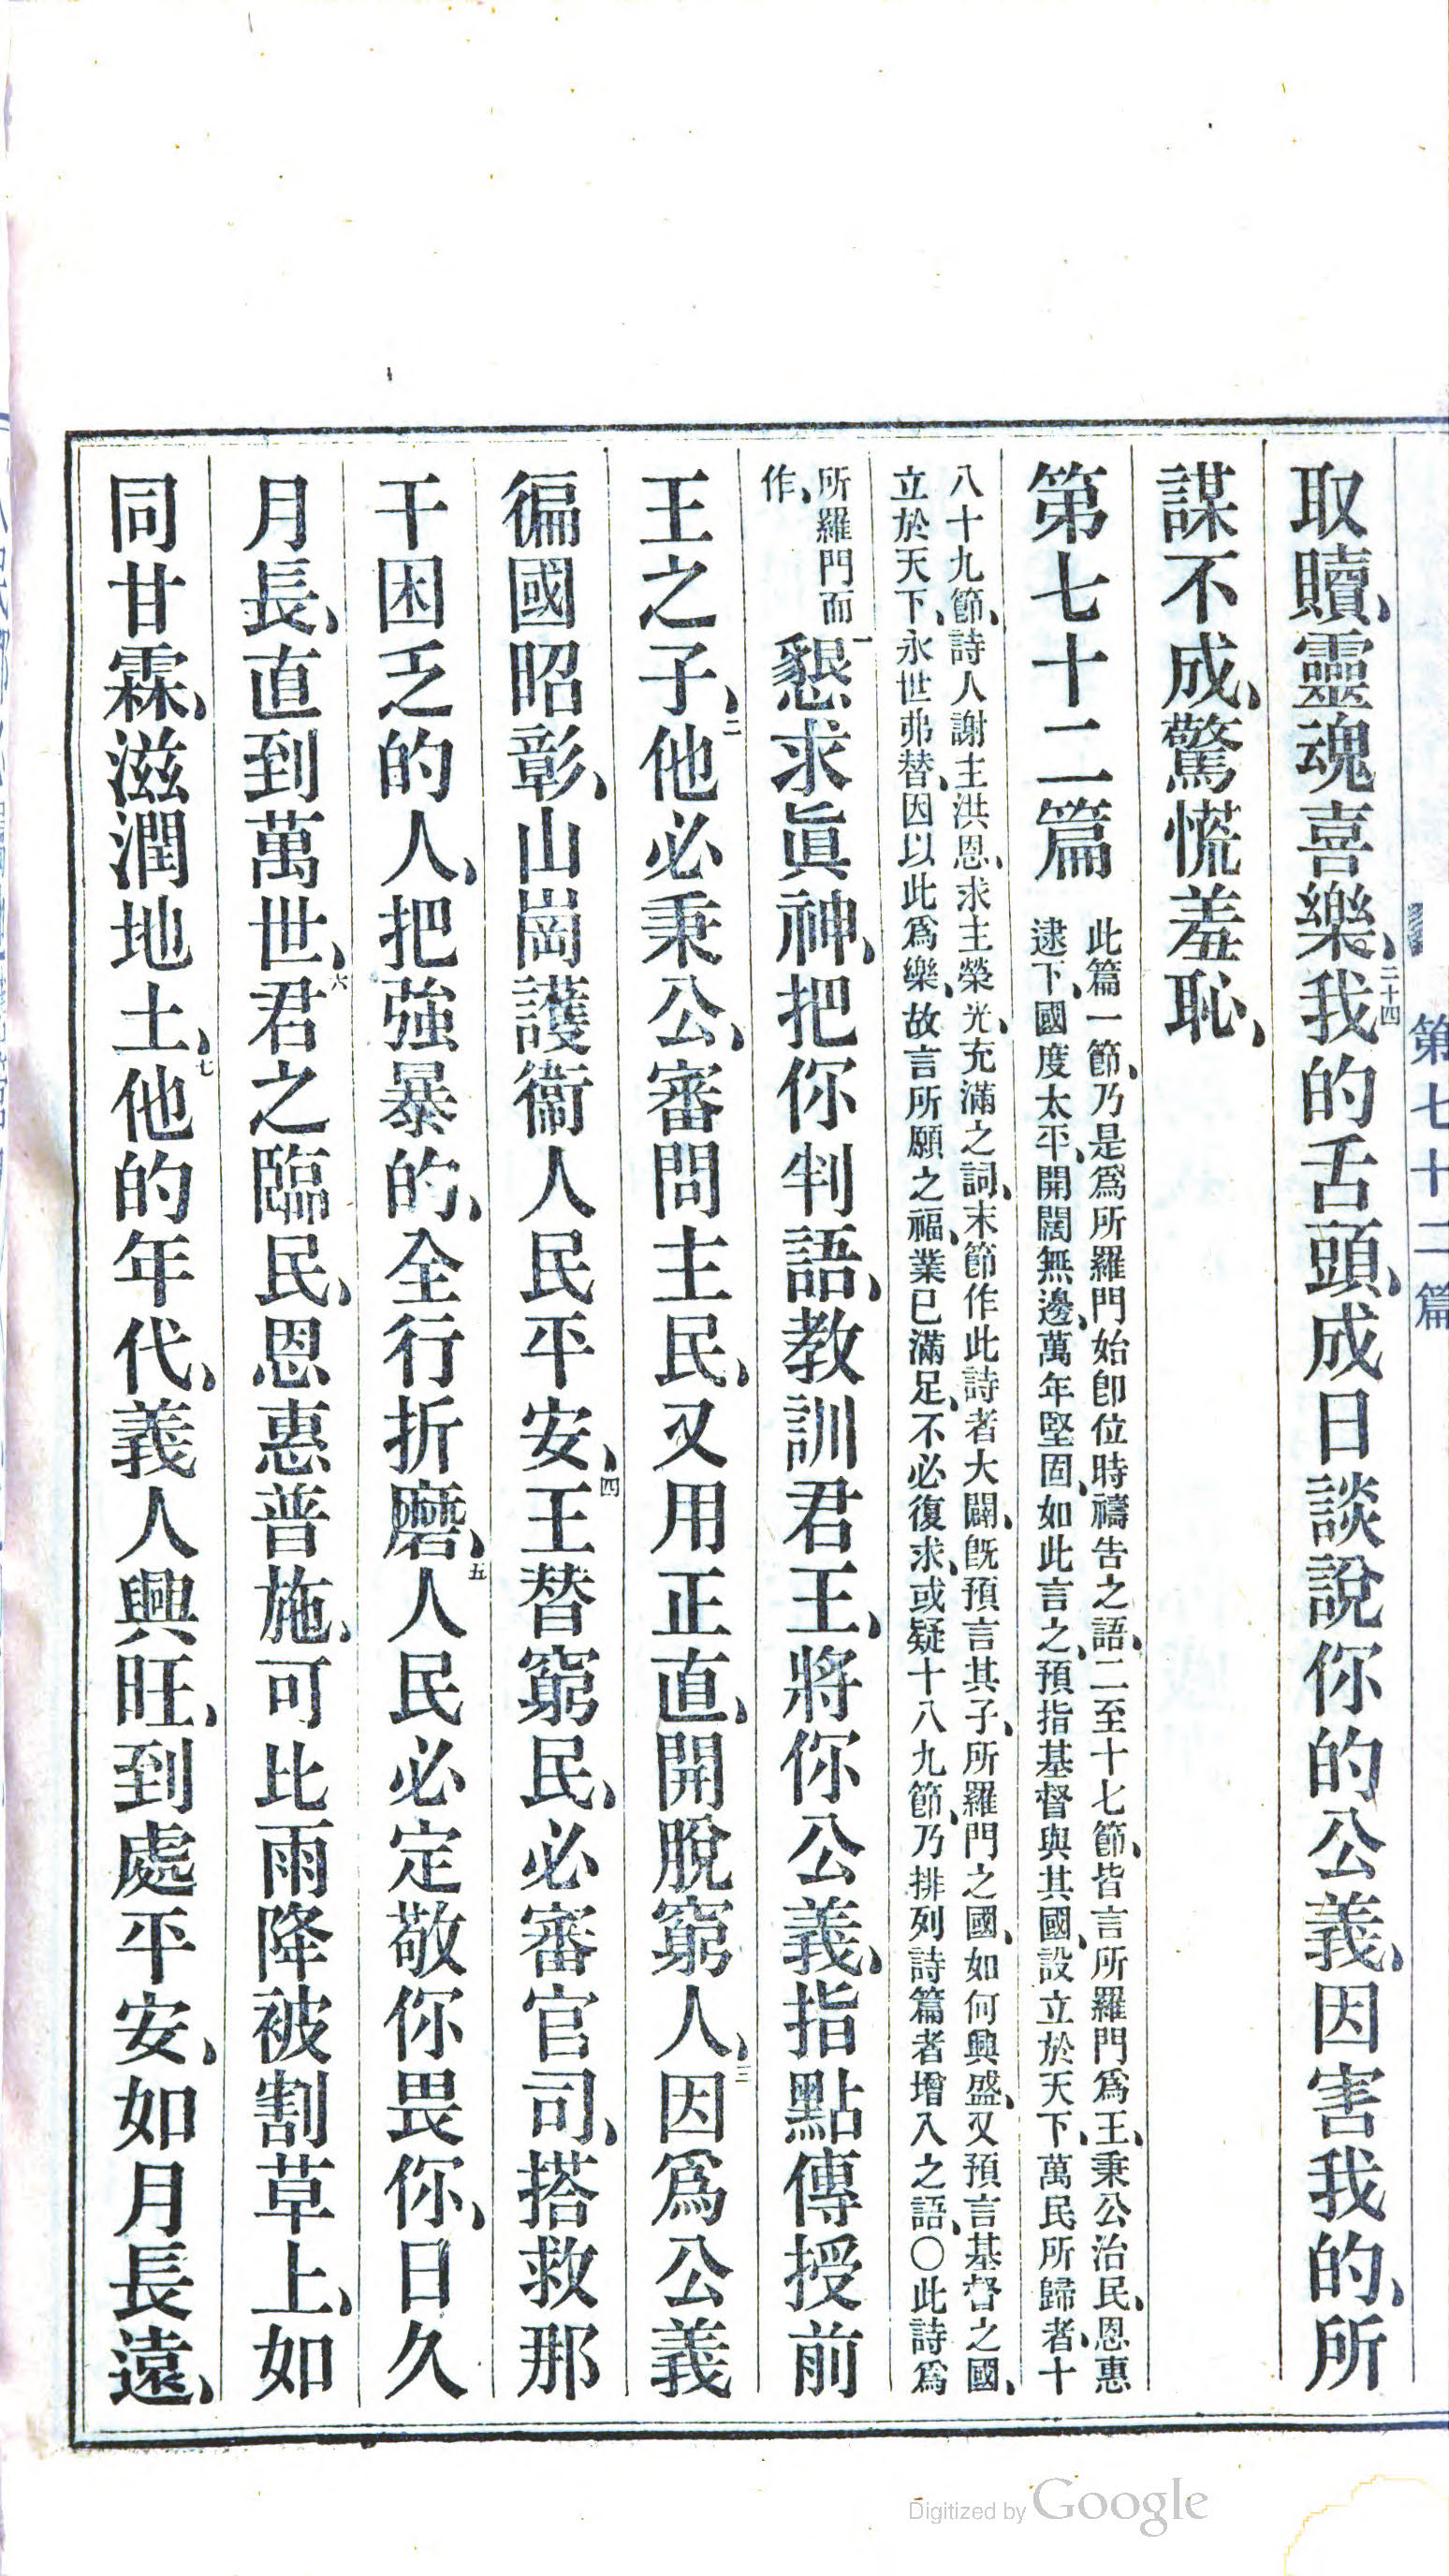 第七十二篇
取贖、靈魂喜樂、二十四我的舌頭、成日談說你的公義、因害我的、所
謀不成、驚慌羞恥、
第七十二篇
此篇一節、乃是爲所羅門始卽位時禱告之語、二至十七節、皆言所羅門爲王、秉公治民、恩惠
逮下、國度太平、開闊無邊、萬年堅固、如此言之、預指基督與其國、設立於天下、萬民所歸者、十
八十九節、詩人謝主洪恩、求主榮光、充滿之詞、末節作此詩者大闢、旣預言其子、所羅門之國、如何興盛、又預言基督之國、
立於天下、永世弗替、因以此爲樂、故言所願之福、業已滿足、不必復求、或疑十八九節、乃排列詩篇者增入之語、〇此詩爲
所羅門而
作、
一懇求眞神、把你判語、教訓君王、將你公義、指點傳授前
王之子、二他必秉公、審問主民、又用正直、開脫窮人、三因爲公義
徧國昭彰、山崗護衞人民平安、四王替窮民、必審官司、搭救那
干困乏的人、把強暴的、全行折磨、五人民必定敬你畏你、日久
月長、直到萬世、六君之臨民、恩惠普施、可比雨降被割草上、如
同甘霖、滋潤地土、七他的年代、義人興旺、到處平安、如月長遠、
Digitized by Google